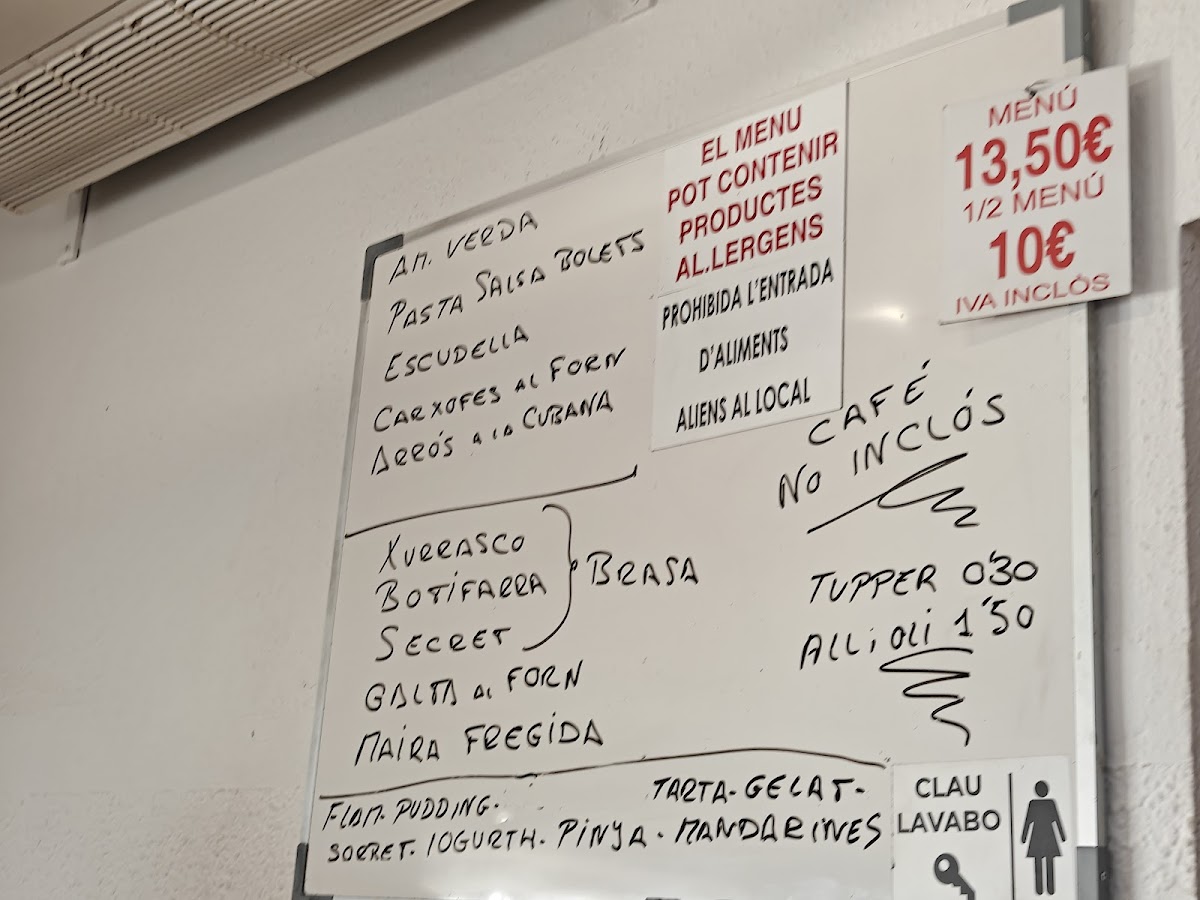 AM. VERDA
PASTA SALSA BOLETS
ESCUDELLA
CARXOFES AL FORN
ARRÓS A LA CUBANA
XURRASCO
BOTIFARRA
SECRET
BRASA
GALTA AL FORN
MAIRA FREGIDA
FLAM. PUDDING. TARTA-GELAT-
SORBET. IOGURTH. PINYA. MANDARINES
EL MENU
POT CONTENIR
PRODUCTES
AL.LERGENS
PROHIBIDA L'ENTRADA
D'ALIMENTS
ALIENS AL LOCAL
MENÚ
13,50€
1/2 MENÚ
10€
IVA INCLÓS
CAFÉ
NO INCLÓS
TUPPER 0'30
ALLiOLi 1'50
CLAU
LAVABO